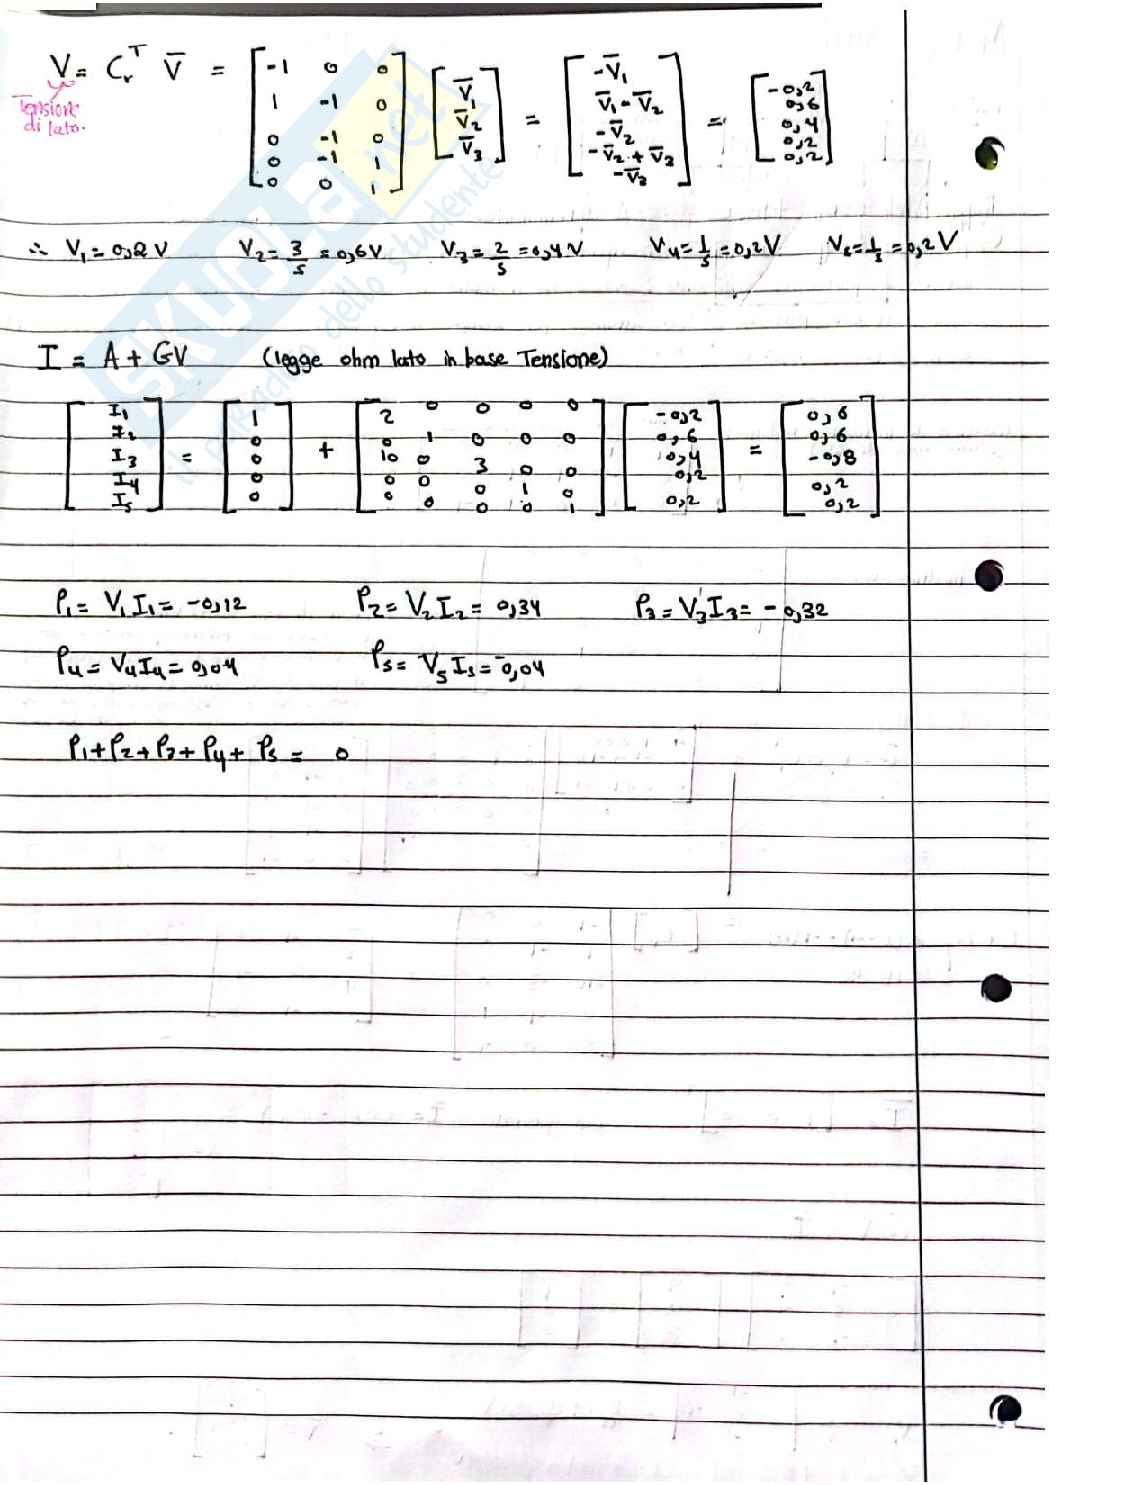 V = Cᵣᵀ V̄ = [ -1 0 0 ; 1 -1 0 ; 0 -1 0 ; 0 -1 1 ; 0 0 1 ] [ V̄₁ ; V̄₂ ; V̄₃ ] = [ -V̄₁ ; V̄₁ - V̄₂ ; -V̄₂ ; -V̄₂ + V̄₃ ; -V̄₃ ] = [ -0,2 ; 0,6 ; 0,4 ; 0,2 ; 0,2 ]
Tensione
di lato.
∴ V₁ = 0,2 V V₂ = 3/5 = 0,6 V V₃ = 2/5 = 0,4 V V₄ = 1/5 = 0,2 V V₅ = 1/5 = 0,2 V
I = A + GV (legge ohm lato in base Tensione)
[ I₁ ; I₂ ; I₃ ; I₄ ; I₅ ] = [ 1 ; 0 ; 0 ; 0 ; 0 ] + [ 2 0 0 0 0 ; 0 1 0 0 0 ; 10 0 3 0 0 ; 0 0 0 1 0 ; 0 0 0 0 1 ] [ -0,2 ; 0,6 ; 0,4 ; 0,2 ; 0,2 ] = [ 0,6 ; 0,6 ; -0,8 ; 0,2 ; 0,2 ]
P₁ = V₁I₁ = -0,12 P₂ = V₂I₂ = 0,34 P₃ = V₃I₃ = -0,32
P₄ = V₄I₄ = 0,04 P₅ = V₅I₅ = -0,04
P₁ + P₂ + P₃ + P₄ + P₅ = 0
SKUOLA.net
il paradiso dello studente